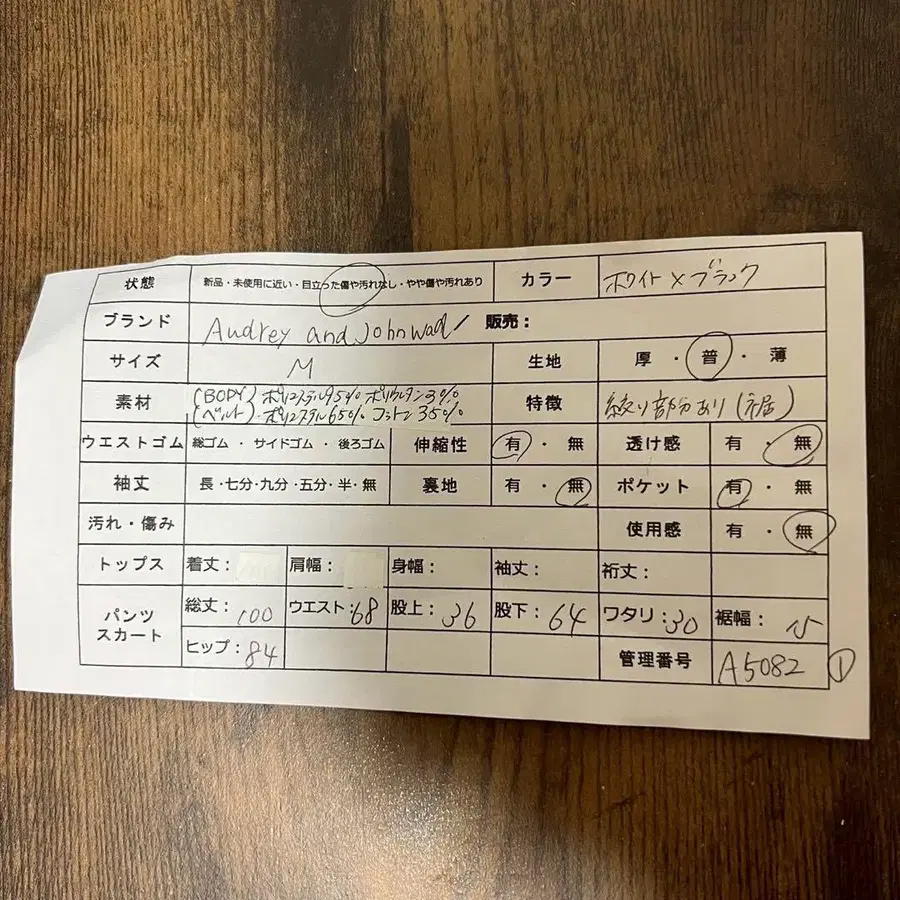 状態 新品・未使用に近い・目立った傷や汚れなし・やや傷や汚れあり カラー ホワイト×ブラック
ブランド Audrey and John Wad 販売：
サイズ M 生地 厚・普・薄
素材 (BODY) ポリエステル95% ポリウレタン 特徴 絞り部分あり(裾)
(ベルト)・ポリエステル65% コットン35%
ウエストゴム 総ゴム・サイドゴム・後ろゴム 伸縮性 有・無 透け感 有・無
袖丈 長・七分・九分・五分・半・無 裏地 有・無 ポケット 有・無
汚れ・傷み 使用感 有・無
トップス 着丈： 肩幅： 身幅： 袖丈： 裄丈：
パンツ スカート 総丈：100 ウエスト：68 股上：36 股下：64 ワタリ：30 裾幅：15
ヒップ：84 管理番号 A5082 ①